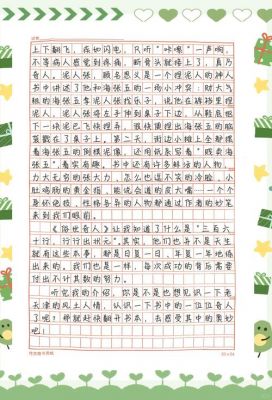 上下翻飞，疾如闪电，只听“咔嚓”一声响，
不等病人感觉到疼痛，断骨就接上了，真乃
奇人。泥人张，顾名思义是一个捏泥人的神人，
书中讲述了他和海张五的一场小冲突：财大气
粗的海张五拿泥人张找乐子，说他在裤裆里捏
泥人，泥人张将左手伸到桌子下边，从鞋底抠
下一块泥巴飞快捏弄，很快便捏出海张五的脑
袋戳在了桌子上。第二天，街边小摊上全都摆
着海张五的倒模泥像，还用纸条写着“贱卖海
张五”，看实有趣。书中还有许多鲜活的人物，
力大无穷的张大力，怎么也逗不笑的冷脸，小
肚鸡肠的黄金指，能说会道的皮大嘴……一个个
身怀绝技、性格各异的人物都通过作者的妙笔
来到我们眼前。
《俗世奇人》让我知道了什么是“三百六
十行，行行出状元”。其实，他们也并不是天生
就有这些本事，都是日复一日、年复一年地练
出来的。我们也是一样，每次成功的背后需要
付出不计其数的努力。
听完我的介绍，你是不是也想见识一下老
天津的风土人情，认识一下书中的一位位奇人
了呢？那就赶快翻开书本，去感受其中的奥妙
吧！